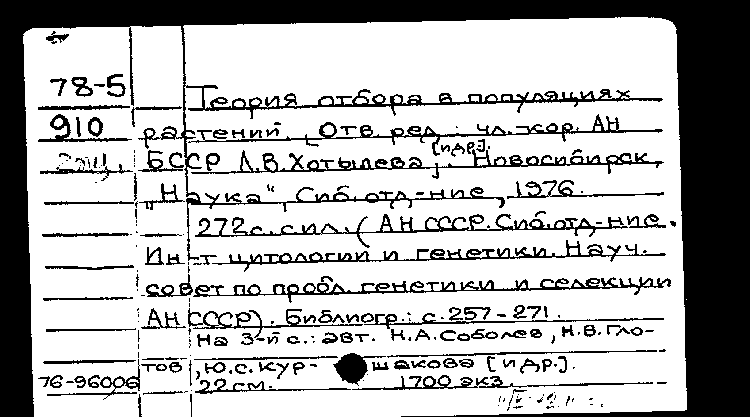 78-5
910
2 экз.
Теория отбора в популяциях
растений. [Отв. ред.: чл.-кор. АН
БССР Л.В.Хотылева [и др.]]. Новосибирск,
„Наука“, Сиб. отд-ние, 1976.
272 с. с ил. (АН СССР. Сиб. отд-ние.
Ин-т цитологии и генетики. Науч.
совет по пробл. генетики и селекции
АН СССР). Библиогр.: с. 257-271.
На 3-й с.: авт. Н.А.Соболев, Н.В.Гло-
тов, Ю.С.Кур- шакова [и др.].
76-96006 22 см. 1700 экз.